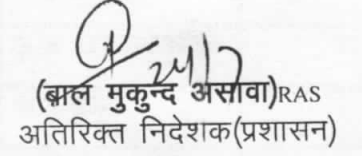 24/7
(बाल मुकुन्द असावा)RAS
अतिरिक्त निदेशक(प्रशासन)